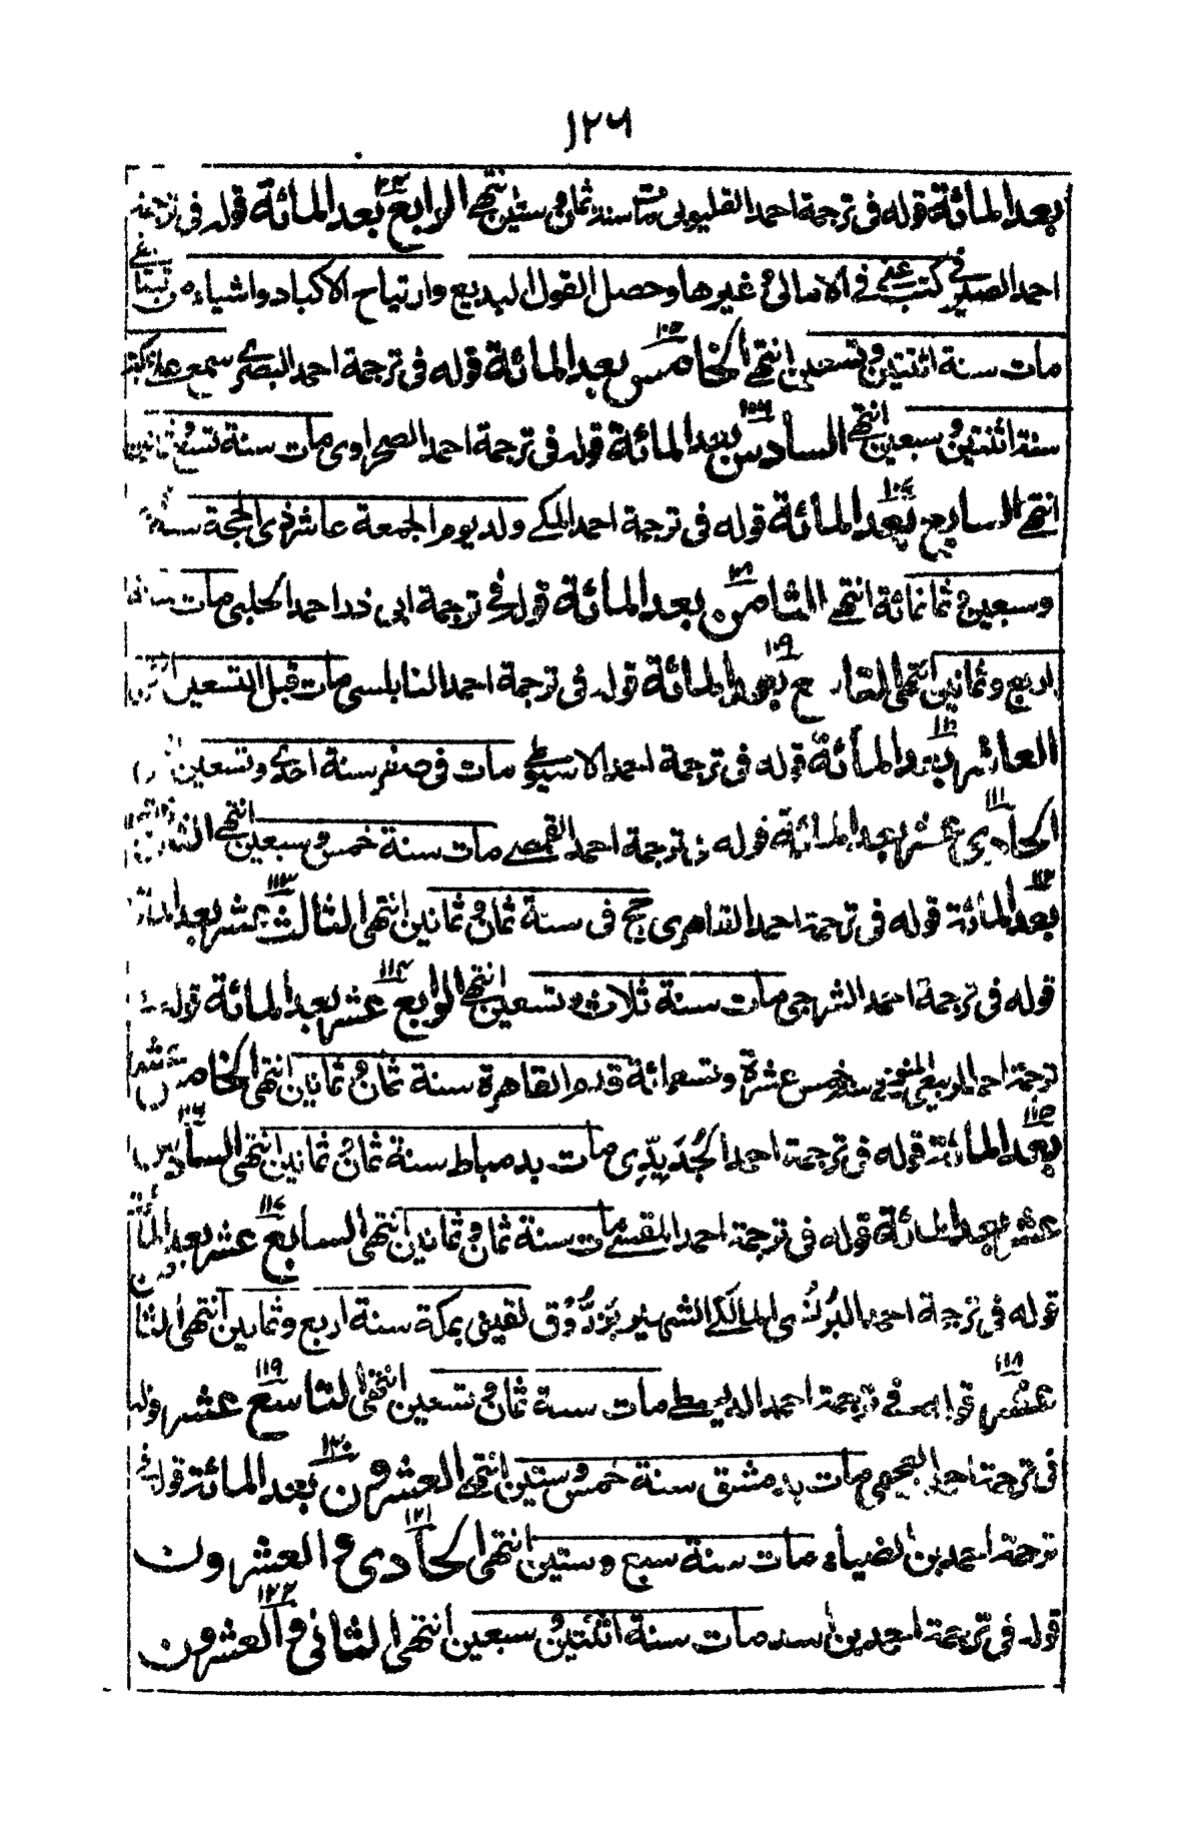 ١٢٦
بعد المائة قوله فى ترجمة احمد القليوبى مات سنة ثمان وستين انتهى الرابع بعد المائة قوله فى ترجمة
احمد الصير فى كتب عنى فى الامالى وغيرها وحصل القول البديع وارتياح الاكباد واشياء من
مات سنة اثنتين وتسعين انتهى الخامس بعد المائة قوله فى ترجمة احمد البصرى سمع على
سنة اثنتين وسبعين انتهى السادس بعد المائة قوله فى ترجمة احمد الصحراوى مات سنة تسع وثمانين
انتهى السابع بعد المائة قوله فى ترجمة احمد المكى ولد يوم الجمعة عاشر ذى الحجة سنة
وسبعين وثمانمائة انتهى الثامن بعد المائة قوله فى ترجمة ابى ذر احمد الحلبى مات سنة
اربع وثمانين انتهى التاسع بعد المائة قوله فى ترجمة احمد النابلسى مات قبل التسعين انتهى
العاشر بعد المائة قوله فى ترجمة احمد الاسيوطى مات فى صفر سنة احدى وتسعين
الحادى عشر بعد المائة قوله فى ترجمة احمد القمصى مات سنة خمس وسبعين انتهى الثانى عشر
بعد المائة قوله فى ترجمة احمد القاهرى حج فى سنة ثمان وثمانين انتهى الثالث عشر بعد المائة
قوله فى ترجمة احمد الشرجى مات سنة ثلاث وتسعين انتهى الرابع عشر بعد المائة قوله فى
ترجمة احمد سنة خمس عشرة وتسعمائة قدم القاهرة سنة ثمان وثمانين انتهى الخامس عشر
بعد المائة قوله فى ترجمة احمد الجُدَيدِّى مات بدمياط سنة ثمان وثمانين انتهى السادس
عشر بعد المائة قوله فى ترجمة احمد المقسى مات سنة ثمان وثمانين انتهى السابع عشر بعد المائة
قوله فى ترجمة احمد البُرنُسى المالكى الشهير بزرُّوق لقينى بمكة سنة اربع وثمانين انتهى الثامن
عشر قوله فى ترجمة احمد الدميطى مات سنة ثمان وتسعين انتهى التاسع عشر قوله
فى ترجمة احمد مات بدمشق سنة خمس وستين انتهى العشرون بعد المائة قوله فى
ترجمة احمد بن الضياء مات سنة سبع وستين انتهى الحادى والعشرون
قوله فى ترجمة احمد بن اسد مات سنة اثنتين وسبعين انتهى الثانى والعشرون